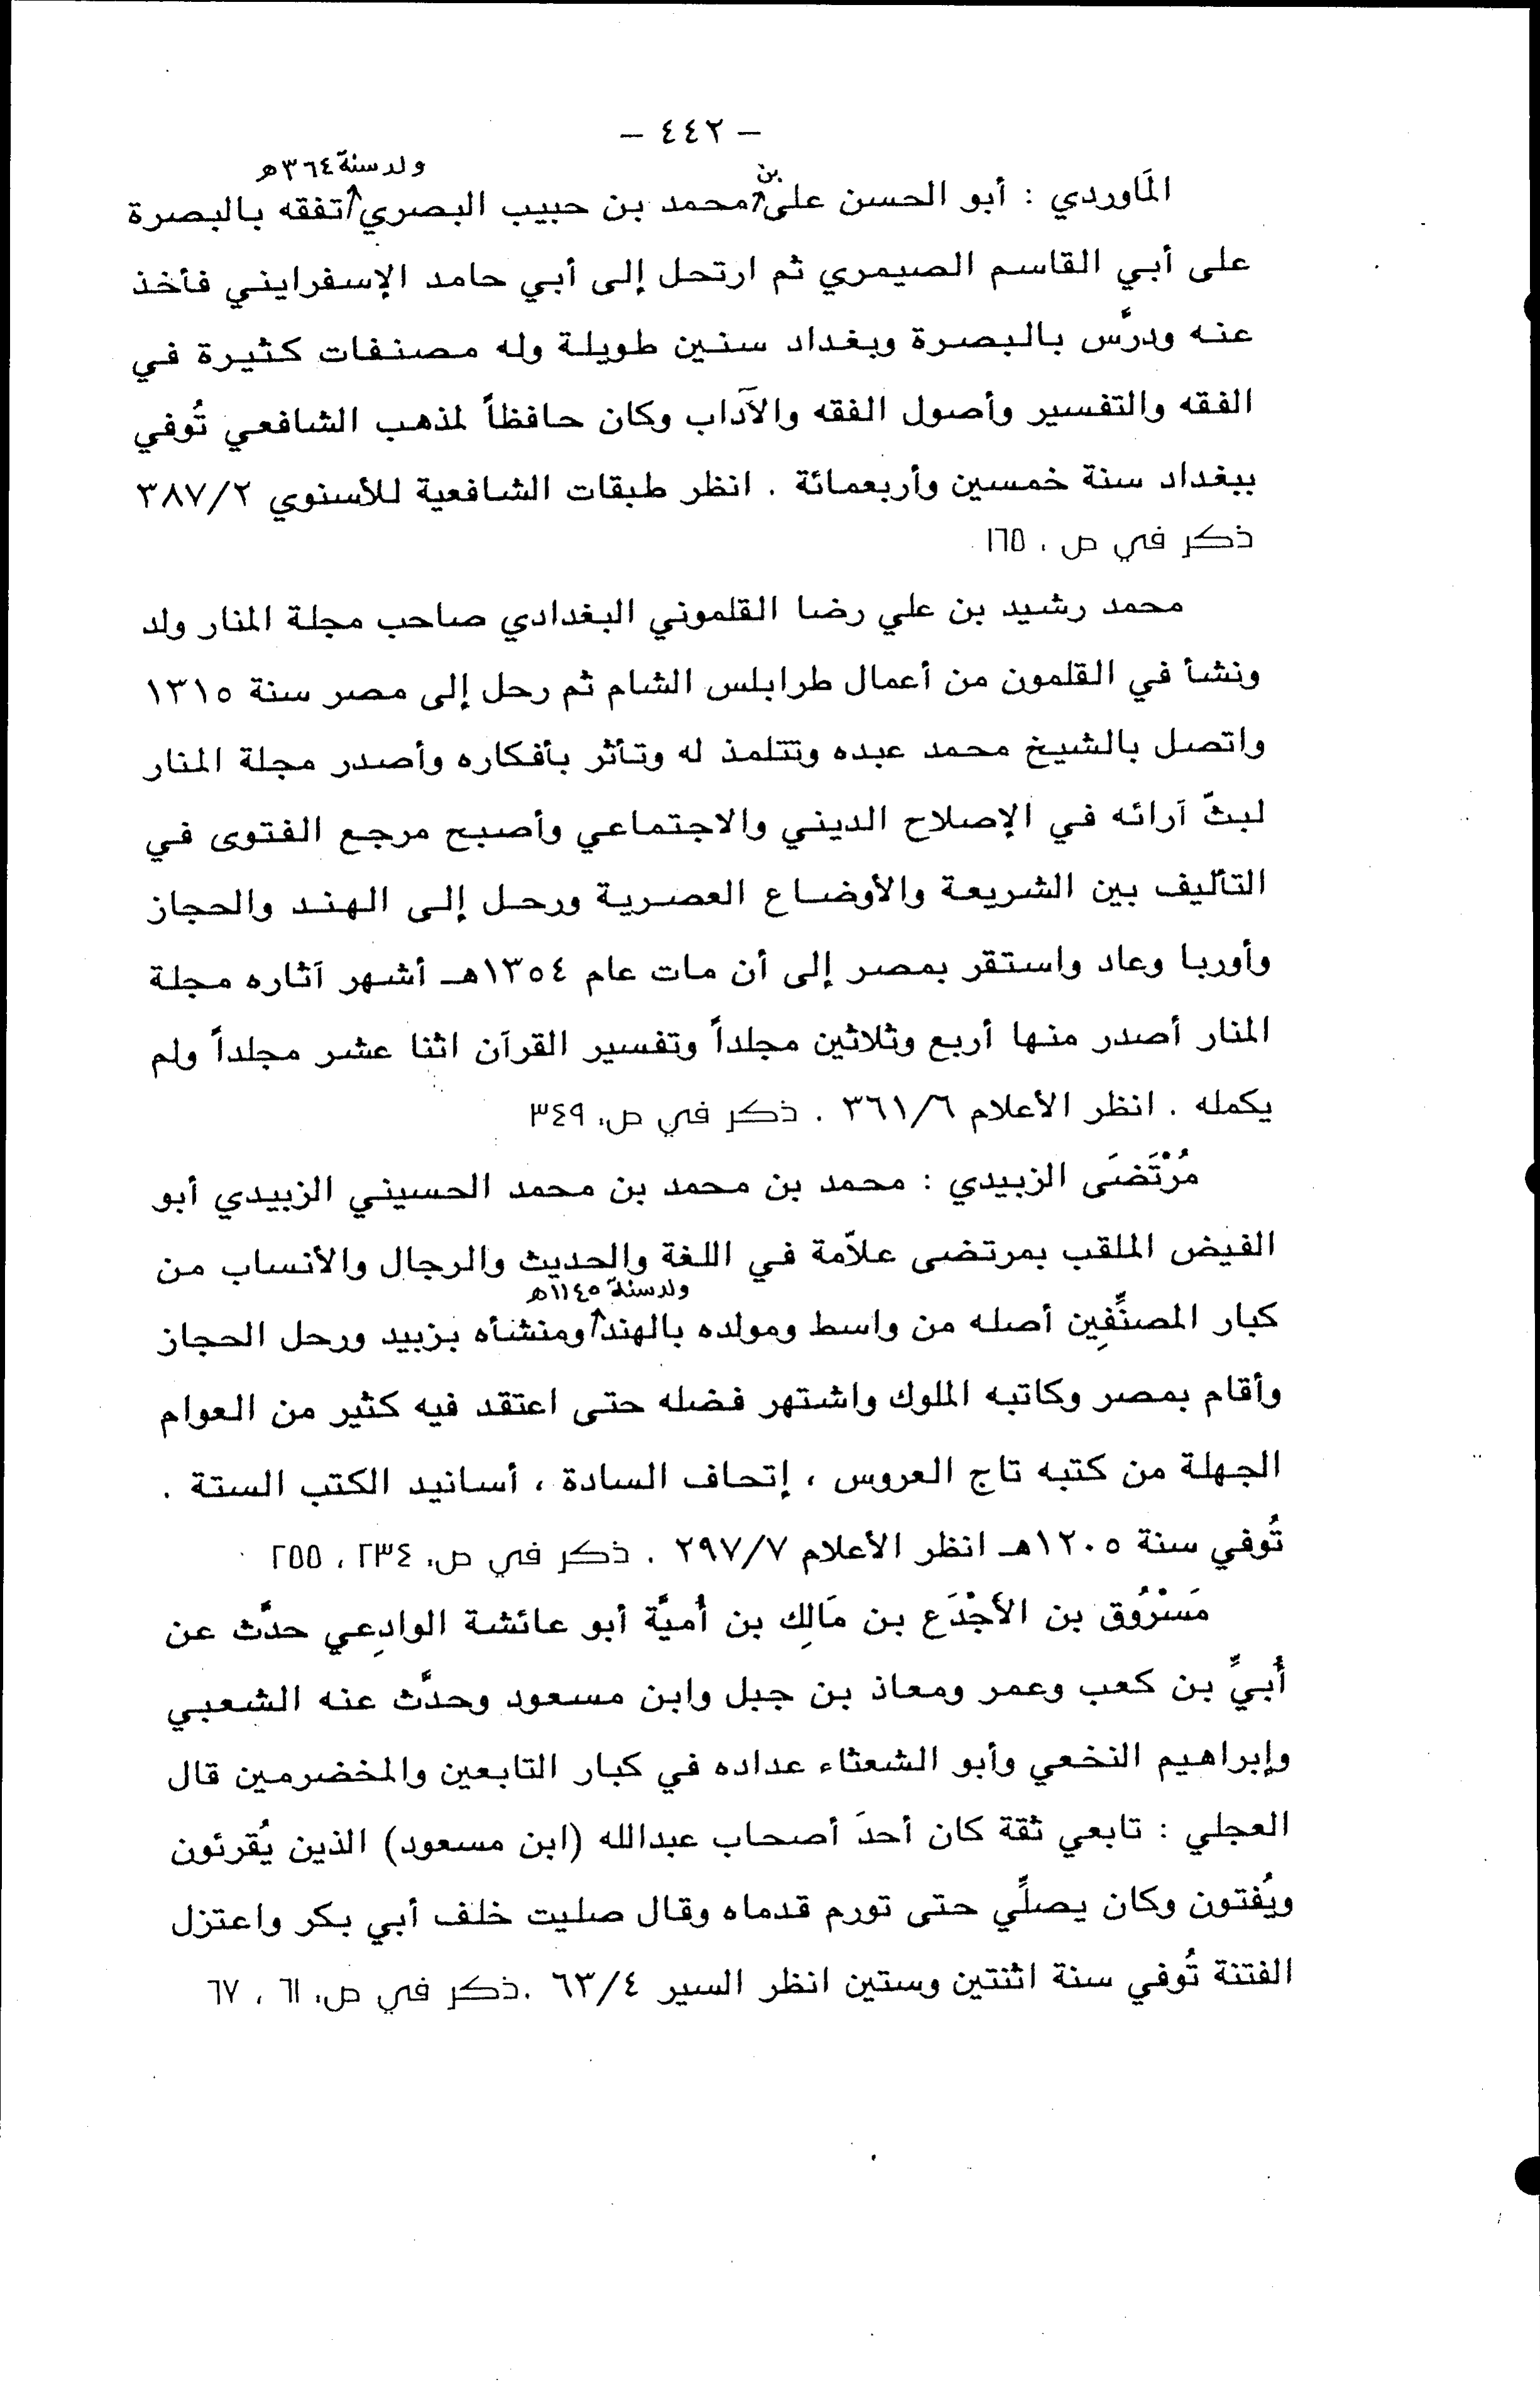 – ٤٤٢ –
ولد سنة ٣٦٤ه
بن
المَاوردي : أبو الحسن على محمد بن حبيب البصري تفقه بالبصرة
على أبي القاسم الصيمري ثم ارتحل إلى أبي حامد الإسفرايني فأخذ
عنه ودرَّس بالبصرة وبغداد سنين طويلة وله مصنفات كثيرة في
الفقه والتفسير وأصول الفقه والآداب وكان حافظاً لمذهب الشافعي تُوفي
ببغداد سنة خمسين وأربعمائة . انظر طبقات الشافعية للأسنوي ٣٨٧/٢
ذكر في ص ، ١٦٥
محمد رشيد بن علي رضا القلموني البغدادي صاحب مجلة المنار ولد
ونشأ في القلمون من أعمال طرابلس الشام ثم رحل إلى مصر سنة ١٣١٥
واتصل بالشيخ محمد عبده وتتلمذ له وتأثر بأفكاره وأصدر مجلة المنار
لبثّ آرائه في الإصلاح الديني والاجتماعي وأصبح مرجع الفتوى في
التأليف بين الشريعة والأوضاع العصرية ورحل إلى الهند والحجاز
وأوربا وعاد واستقر بمصر إلى أن مات عام ١٣٥٤هـ أشهر آثاره مجلة
المنار أصدر منها أربع وثلاثين مجلداً وتفسير القرآن اثنا عشر مجلداً ولم
يكمله . انظر الأعلام ٣٦١/٦ . ذكر في ص، ٣٤٩
مُرْتَضَى الزبيدي : محمد بن محمد بن محمد الحسيني الزبيدي أبو
الفيض الملقب بمرتضى علاّمة في اللغة والحديث والرجال والأنساب من
ولد سنة ١١٤٥ه
كبار المصنِّفِين أصله من واسط ومولده بالهند ومنشأه بزبيد ورحل الحجاز
وأقام بمصر وكاتبه الملوك واشتهر فضله حتى اعتقد فيه كثير من العوام
الجهلة من كتبه تاج العروس ، إتحاف السادة ، أسانيد الكتب الستة .
تُوفي سنة ١٢٠٥هـ انظر الأعلام ٢٩٧/٧ . ذكر في ص، ٢٣٤ ، ٢٥٥
مَسْرُوق بن الأجْدَع بن مَالِك بن أُميَّة أبو عائشة الوادِعي حدَّث عن
أُبيِّ بن كعب وعمر ومعاذ بن جبل وابن مسعود وحدَّث عنه الشعبي
وإبراهيم النخعي وأبو الشعثاء عداده في كبار التابعين والمخضرمين قال
العجلي : تابعي ثقة كان أحدَ أصحاب عبدالله (ابن مسعود) الذين يُقرئون
ويُفتون وكان يصلِّي حتى تورم قدماه وقال صليت خلف أبي بكر واعتزل
الفتنة تُوفي سنة اثنتين وستين انظر السير ٦٣/٤ .ذكر في ص، ٦١ ، ٦٧